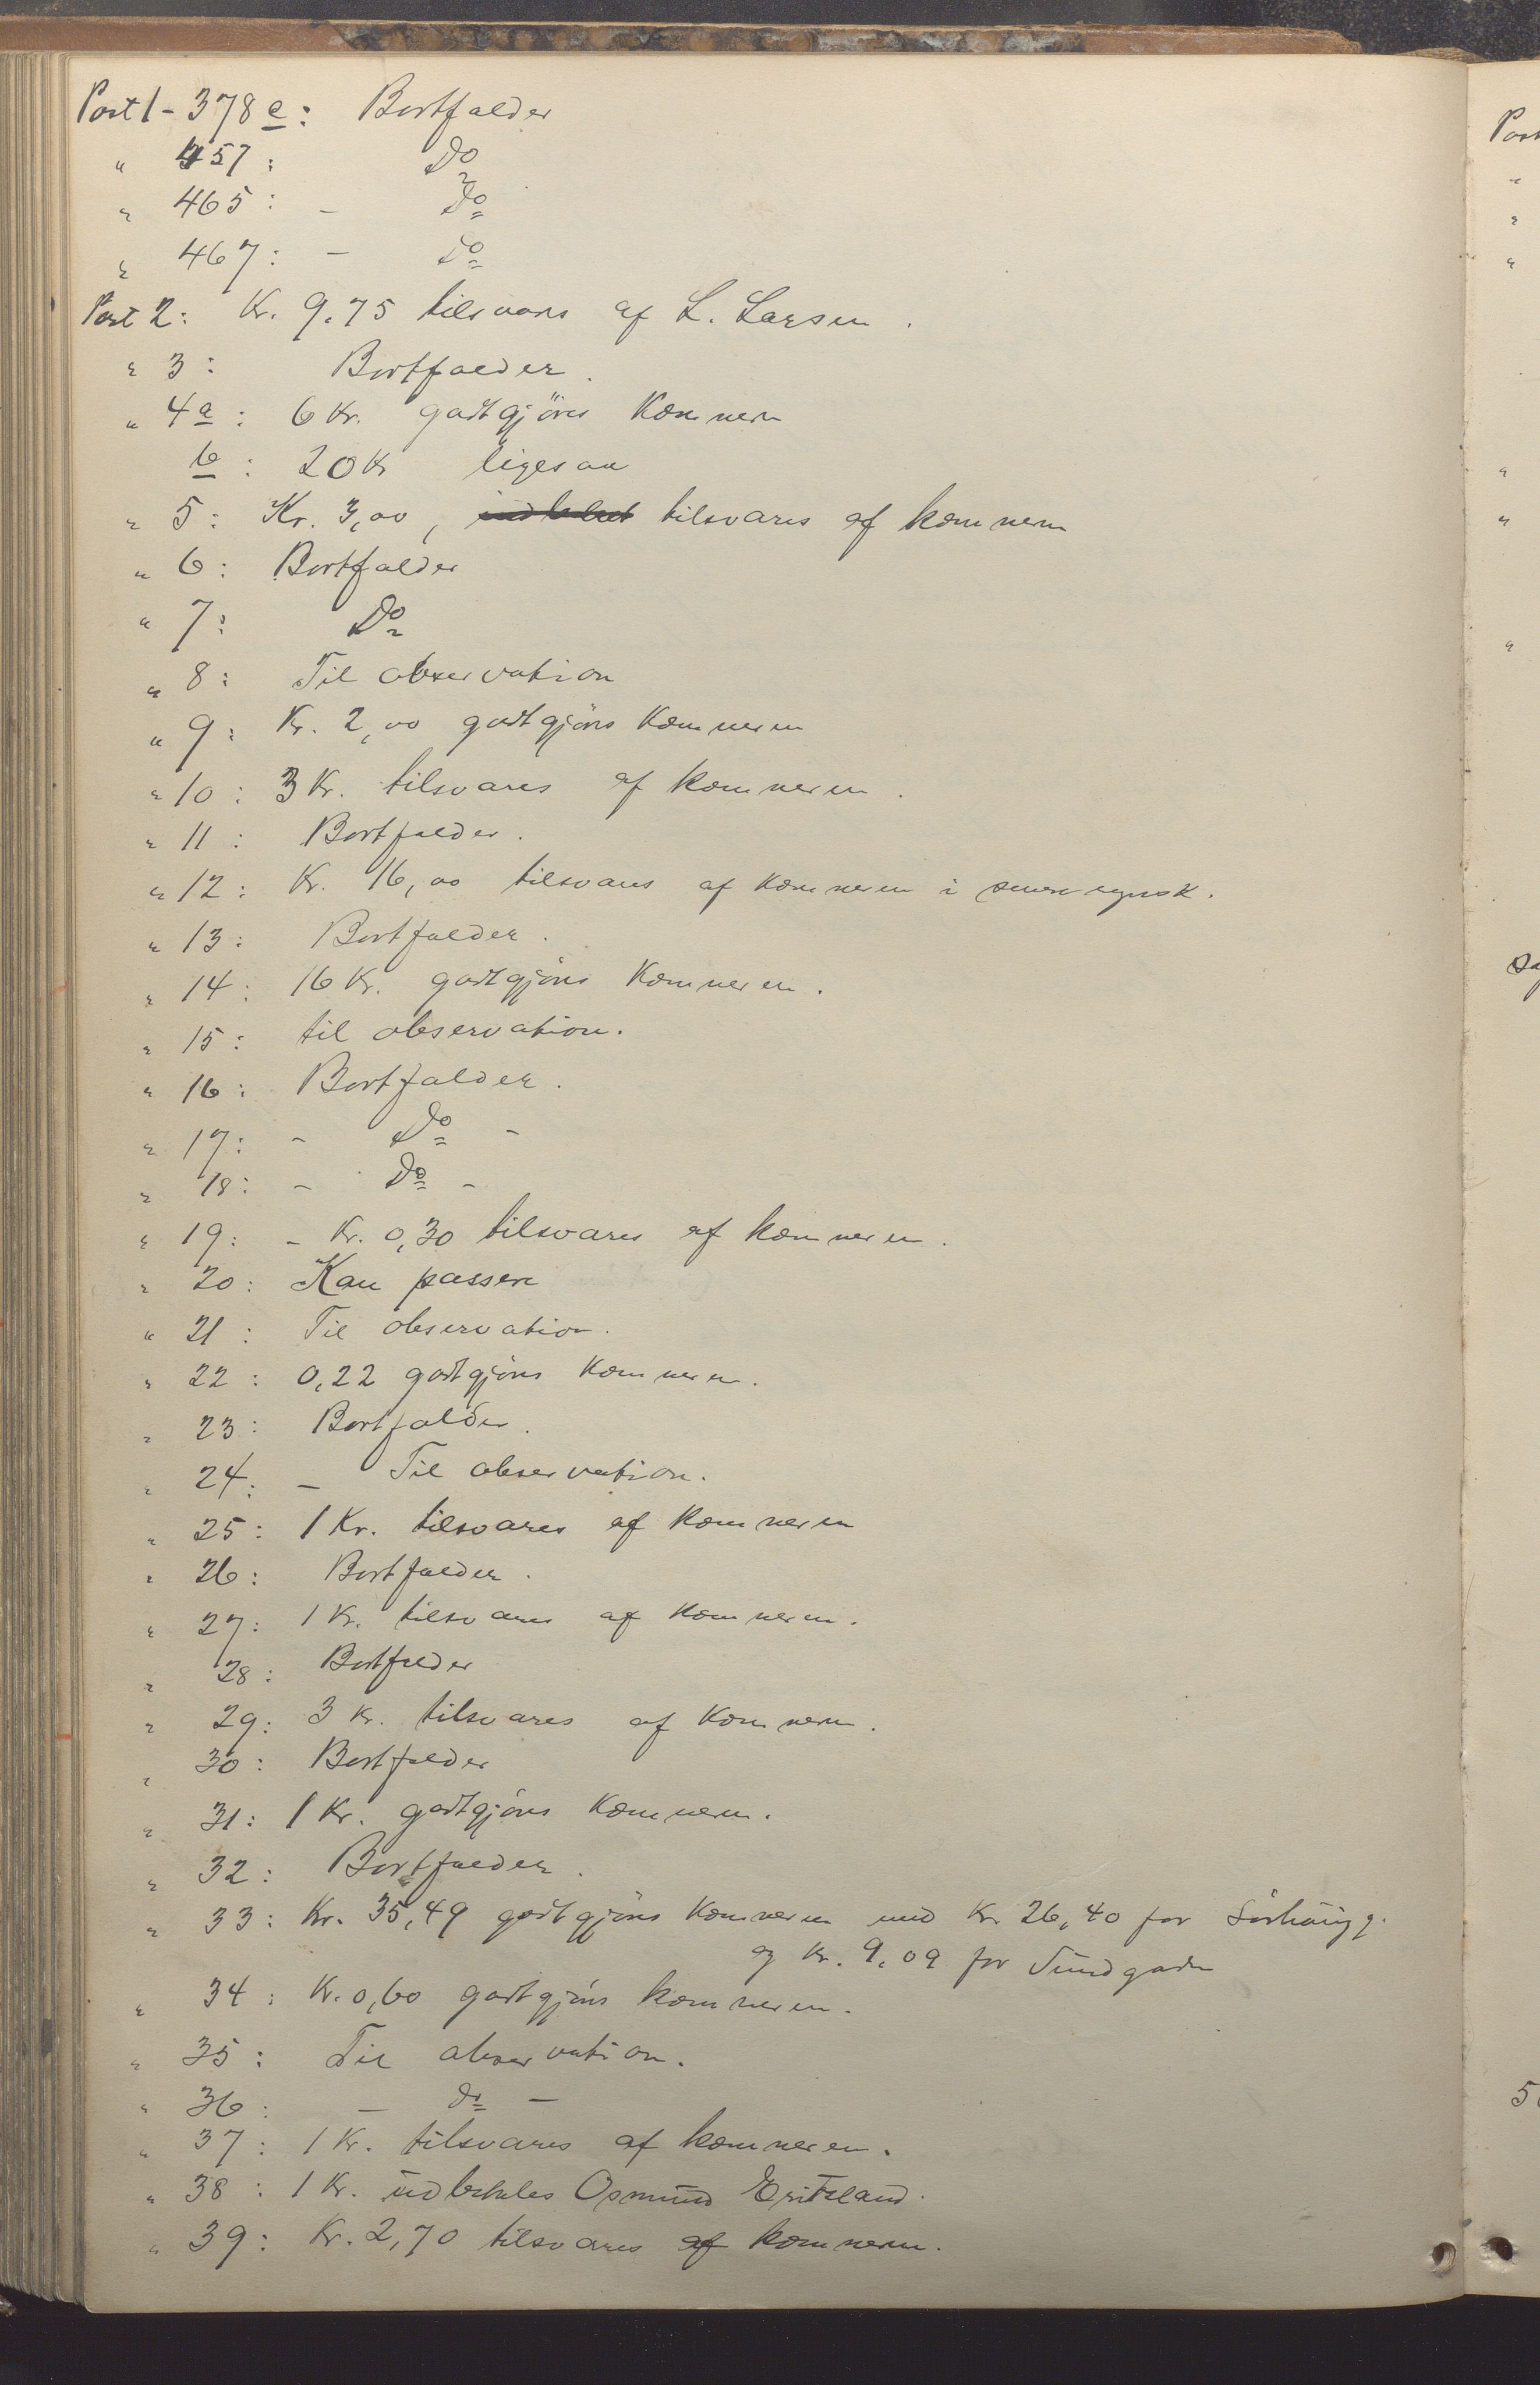 Post 1 - 378 e: Bortfalder
" 457: Do
" 465: - Do
" 467: - Do
Post 2: Kr. 9.75 tilsvares af L. Larsen.
" 3: Bortfalder.
" 4 a: 6 Kr. godtgjöres Kæmneren
b: 20 Kr ligesaa
" 5: Kr. 3,00, tilsvares af kæmneren
" 6: Bortfalder
" 7: Do
" 8: Til observation
" 9: Kr. 2,00 godtgjöres Kæmneren
" 10: 3 Kr. tilsvares af kæmneren.
" 11: Bortfalder.
" 12: Kr. 16,00 tilsvares af kæmneren i senere regnsk.
" 13: Bortfalder.
" 14: 16 Kr. godtgjöres Kæmneren.
" 15: til observation.
" 16: Bortfalder.
" 17: - Do -
" 18: - Do -
" 19: - Kr. 0,30 tilsvares af kæmneren.
" 20: Kan passere
" 21: Til observation.
" 22: 0,22 godtgjöres Kæmneren.
" 23: Bortfalder.
" 24: - Til observation.
" 25: 1 Kr. tilsvares af Kæmneren
" 26: Bortfalder.
" 27: 1 Kr. tilsvares af Kæmneren.
" 28: Bortfalder
" 29: 3 Kr. tilsvares af Kæmneren.
" 30: Bortfalder
" 31: 1 Kr. godtgjöres Kæmneren.
" 32: Bortfalder.
" 33: Kr. 35,49 godtgjöres Kæmneren med Kr. 26,40 for
og Kr. 9,09 for Sundgaden
" 34: Kr. 0,60 godtgjöres kæmneren.
" 35: Til observation.
" 36: - do -
" 37: 1 Kr. tilsvares af kæmneren.
" 38: 1 Kr. udbetales Osmund
" 39: Kr. 2,70 tilsvares af kæmneren.